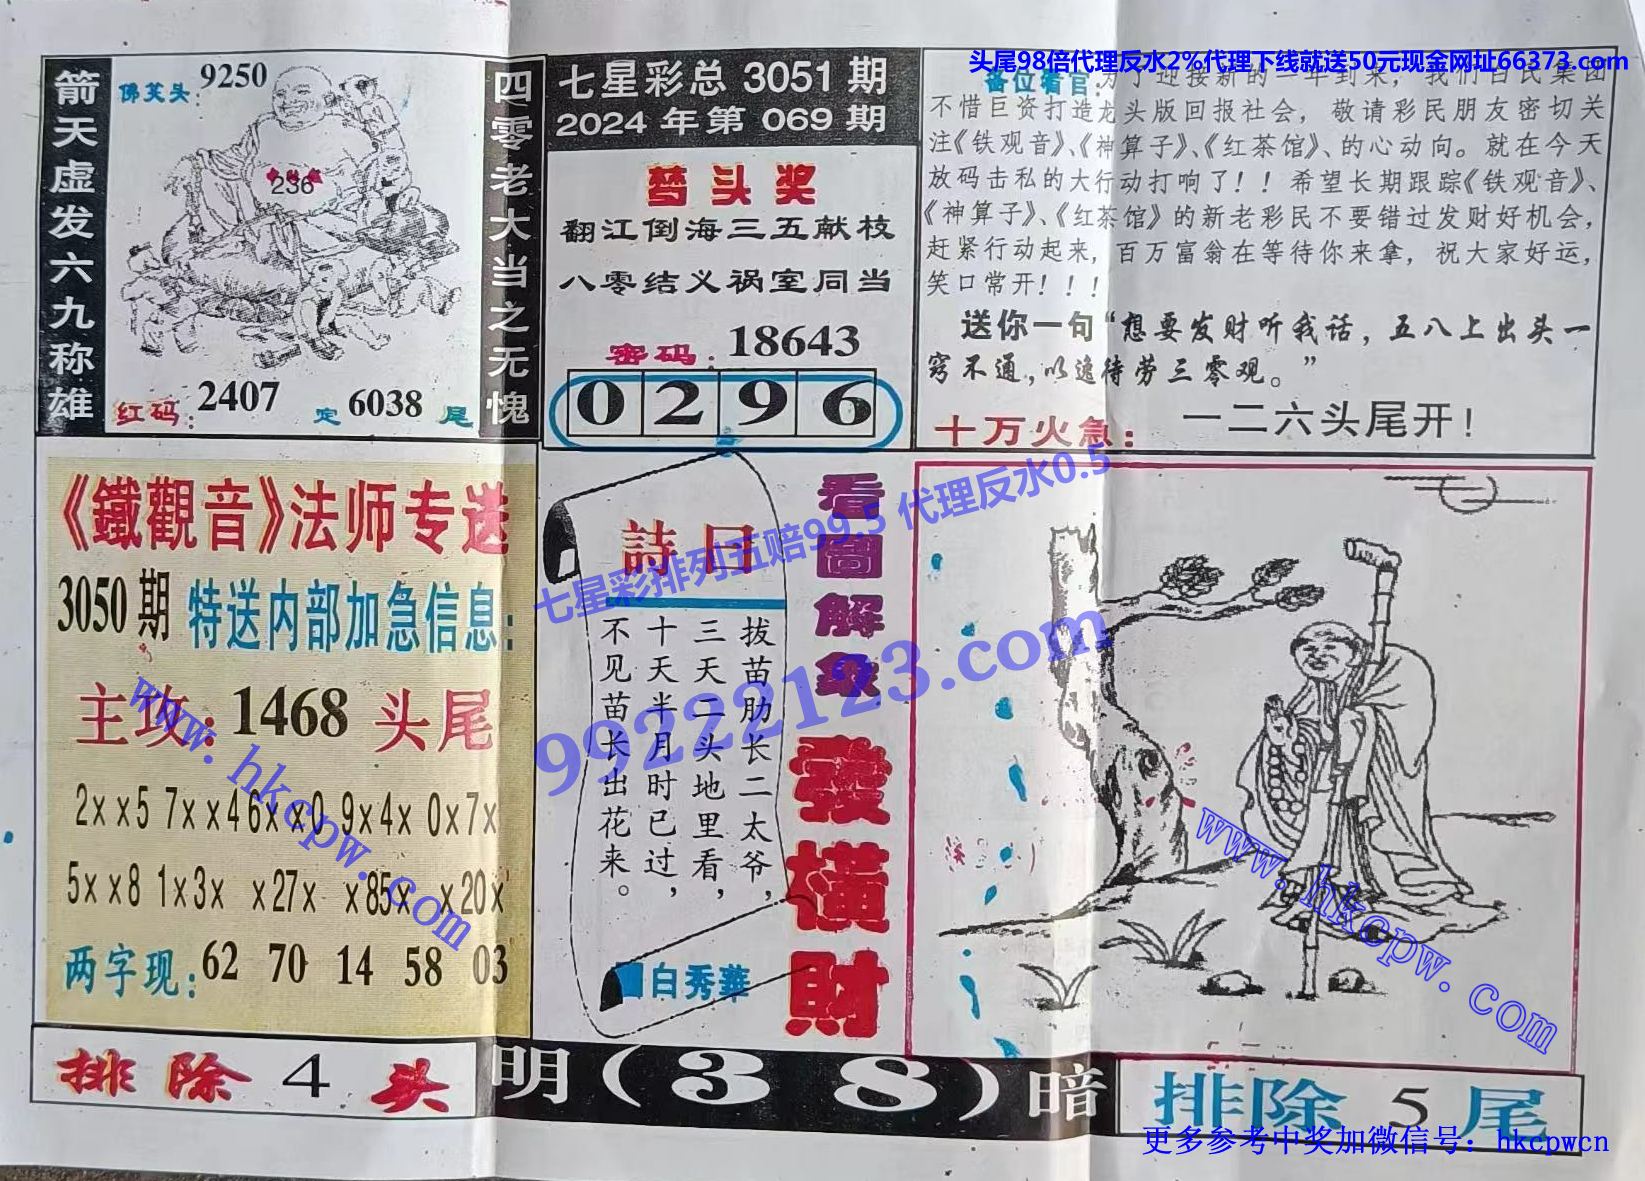 头尾98倍代理反水2%代理下线就送50元现金网址66373.com
箭天虚发六九称雄
佛笑头:9250
236
红码:2407 定6038尾
四零老大当之无愧
七星彩总3051期
2024年第069期
梦头奖
翻江倒海三五献枝
八零结义祸室同当
密码:18643
0 2 9 6
各位看官:为了迎接新的一年到来,我们百民集团
不惜巨资打造龙头版回报社会,敬请彩民朋友密切关
注《铁观音》、《神算子》、《红茶馆》、的心动向。就在今天
放码击私的大行动打响了!!希望长期跟踪《铁观音》、
《神算子》、《红茶馆》的新老彩民不要错过发财好机会,
赶紧行动起来,百万富翁在等待你来拿,祝大家好运,
笑口常开!!!
送你一句“想要发财听我话,五八上出头一
窍不通,以逸待劳三零观。”
十万火急:一二六头尾开!
《鐵觀音》法师专送
3050期 特送内部加急信息:
主攻:1468头尾
2××5 7××4 6××0 9×4× 0×7×
5××8 1×3× ×27× ×85× ×20×
两字现:62 70 14 58 03
詩曰
拔苗肋长二太爷,
三天二头地里看,
十天半月时已过,
不见苗长出花来。
白秀華
看圖解象
發橫財
七星彩排列五赔99.5 代理反水0.5
99222123.com
www.hkcpw.com
www.hkcpw.com
排除4头
明(38)暗
排除5尾
更多参考中奖加微信号:hkcpwcn